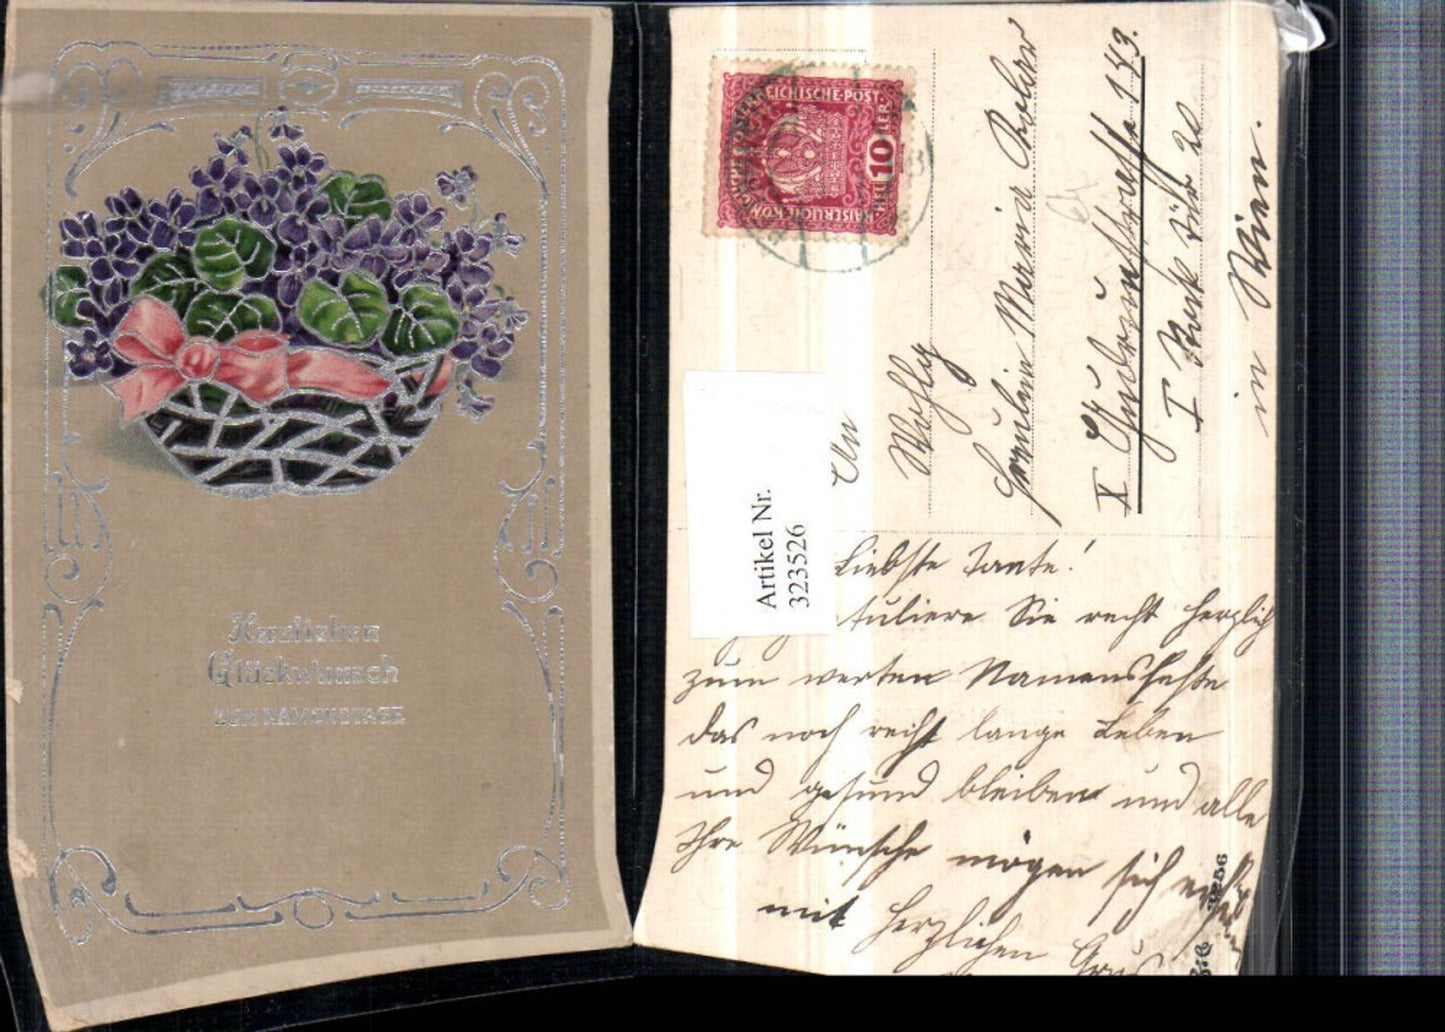 Herzlichen
Glückwunsch
ZUM NAMENSTAGE
REICHISCHE·POST·
10
HELLER
KAISERLICHEKÖN
Artikel Nr.
323526
An
Wohlg
Fräulein Maria
X 143.
I Stock Tür 20
in Wien.
Liebste Tante!
tuliere Sie recht herzlich
zum werten Namensfeste
das noch recht lange Leben
und gesund bleiben und alle
Ihre Wünsche mögen sich
mit herzlichen Grus
3256